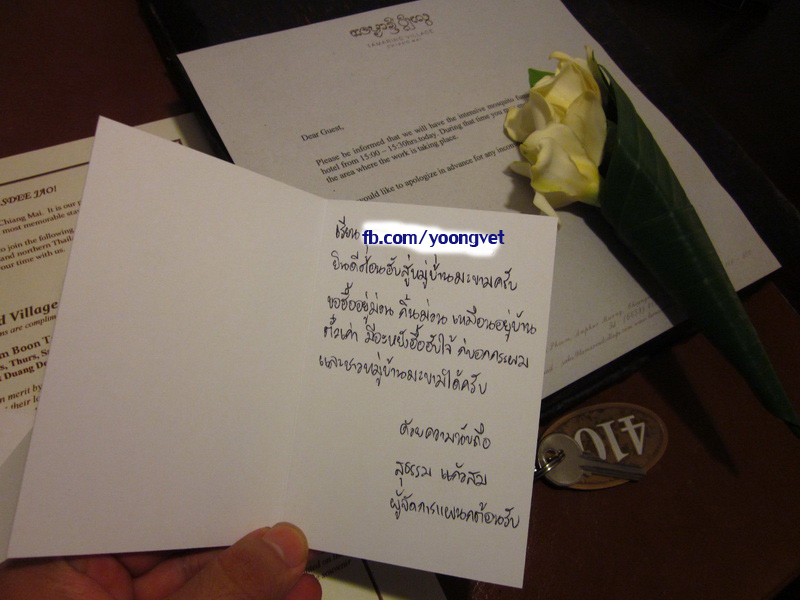 TAMARIND VILLAGE
CHIANG MAI
Dear Guest,
Please be informed that we will have the intensive mosquito
hotel from 15:00 – 15:30hrs.today. During that time you
the area where the work is taking place.
would like to apologize in advance for any
SDEE JAO!
Chiang Mai. It is our
most memorable
to join the following
and northern
your time with us.
d Village
ns are
m Boon
s, Thurs,
Duang
n merit by
d their
เรียน
fb.com/yoongvet
ยินดีต้อนฮับสู่หมู่บ้านมะขามครับ
ขอฮื้ออยู่ม่วน กิ๋นม่วน เหมือนอยู่บ้าน
ตั๋วเก่า มีอะหยังฮื้อฮับใจ้ ก่บอกกระผม
และชาวหมู่บ้านมะขามได้ครับ
ด้วยความนับถือ
สุธรรม แก้วสม
ผู้จัดการแผนกต้อนรับ
410